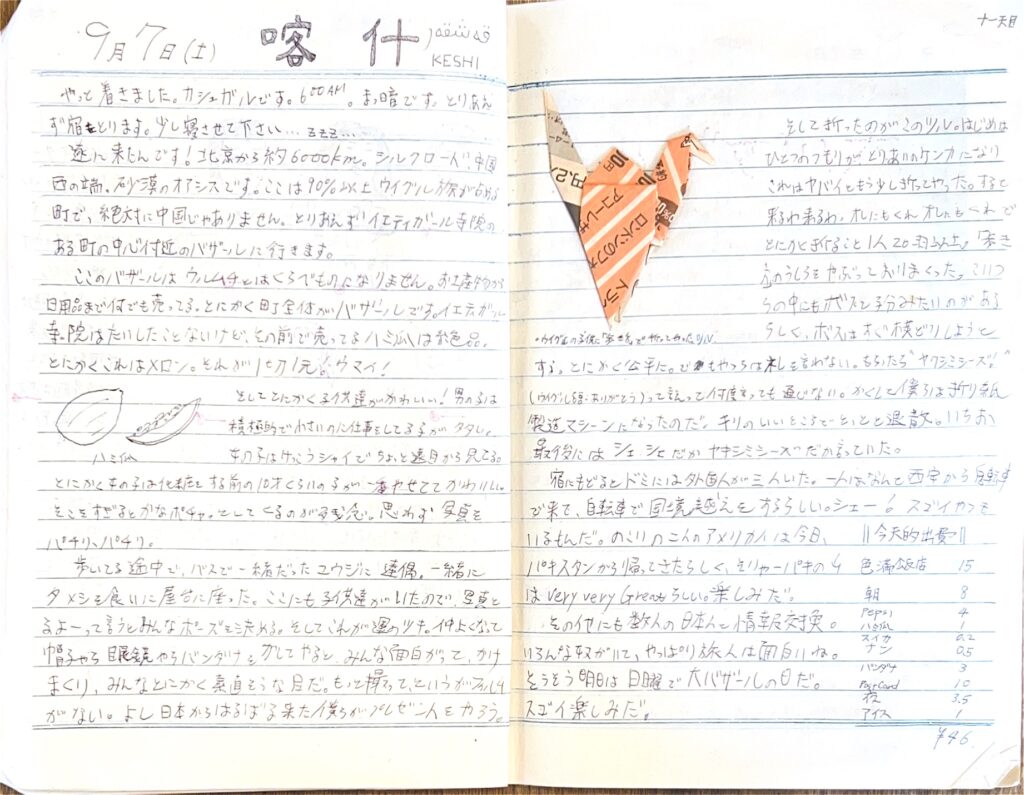 9月7日(土) 喀什 قەشقەر
KESHI
やっと着きました。カシュガルです。6:00AM。まっ暗です。とりあえ
ず宿をとります。少し寝させて下さい… zzz…
遂に来たんです!北京から約6000km。シルクロード、中国
西の端。砂漠のオアシスです。ここは90%以上ウイグル族が占める
町で、絶対に中国じゃありません。とりあえずイエティガール寺院の
ある町の中心付近のバザールに行きます。
ここのバザールはウルムチとはくらべものになりません。お土産物から
日用品まで何でも売ってる。とにかく町全体がバザールです。イエティガール
寺院はたいしたことないけど、その前で売ってるハミ瓜は絶品。
とにかくこれはメロン。それが1切1元。ウマイ!
ハミ瓜
そしてとにかく子供達がかわいい!男の子は
積極的で小さいのに仕事をしてる子が多い。
女の子はけっこうシャイでちょっと遠目から見てる。
とにかく女の子は化粧をする前の10才くらいの子が一番やせててかわいい。
そこをすぎるとかなポチャ。としてくるのが残念。思わず写真を
パチリ、パチリ。
歩いてる途中で、バスで一緒だったユウジに遭偶。一緒に
タメシを食いに屋台に座った。ここにも子供達がいたので、写真と
るよーって言うとみんなポーズを決める。そしてこれが運のツキ。仲よくなって
帽子やら眼鏡やらバンダナをかしてやると、みんな面白がって、かけ
まくり、みんなとにかく素直そうな目だ。もっと撮って、というがフィルム
がない。よし日本からはるばる来た僕らがプレゼントをやろう。
十一天目
そして折ったのがこのツル。はじめは
ひとつのつもりがとりあいのケンカになり
これはヤバイともう少し折ってやった。すると
来るわ来るわ、オレにもくれ オレにもくれで
とにかく折ること1人20羽以上。「歩き
方」のうしろをやぶっており まくった。こいつ
らの中にもボスと子分みたいのがある
らしく、ボスはすぐ横どりしようと
・ウイグルの子供に「歩き方」で折ってやったツル
する。とにかく公平に。でもやつらは礼を言わない。もらったら"ヤクシミシーズ!"
(ウイグル語・ありがとう)って言えって何度言っても通じない。かくして僕らは折り紙
製造マシーンになったのだ。キリのいいところでとっとと退散。いちお
最後にはシェシェだかヤキシミシーズだか言っていた。
宿にもどるとドミには外国人が三人いた。一人はなんと西安から自転車
で来て、自転車で国境越えをするらしい。シェー!スゴイヤツも
いるもんだ。のこりの二人のアメリカ人は今日、
パキスタンから帰ってきたらしく、そりゃーパキの山
はvery very Greatらしい。楽しみだ。
その他にも数人の日本人と情報交換。
いろんなヤツがいて、やっぱり旅人は面白いね。
そうそう明日は日曜で大バザールの日だ。
スゴイ楽しみだ。
||今天的出費||
色満飯店 15
朝 8
Pepsi 4
ハミ瓜 1
スイカ 0.2
ナン 0.5
バンダナ 3
Post Card 10
夜 3.5
アイス 1
¥46